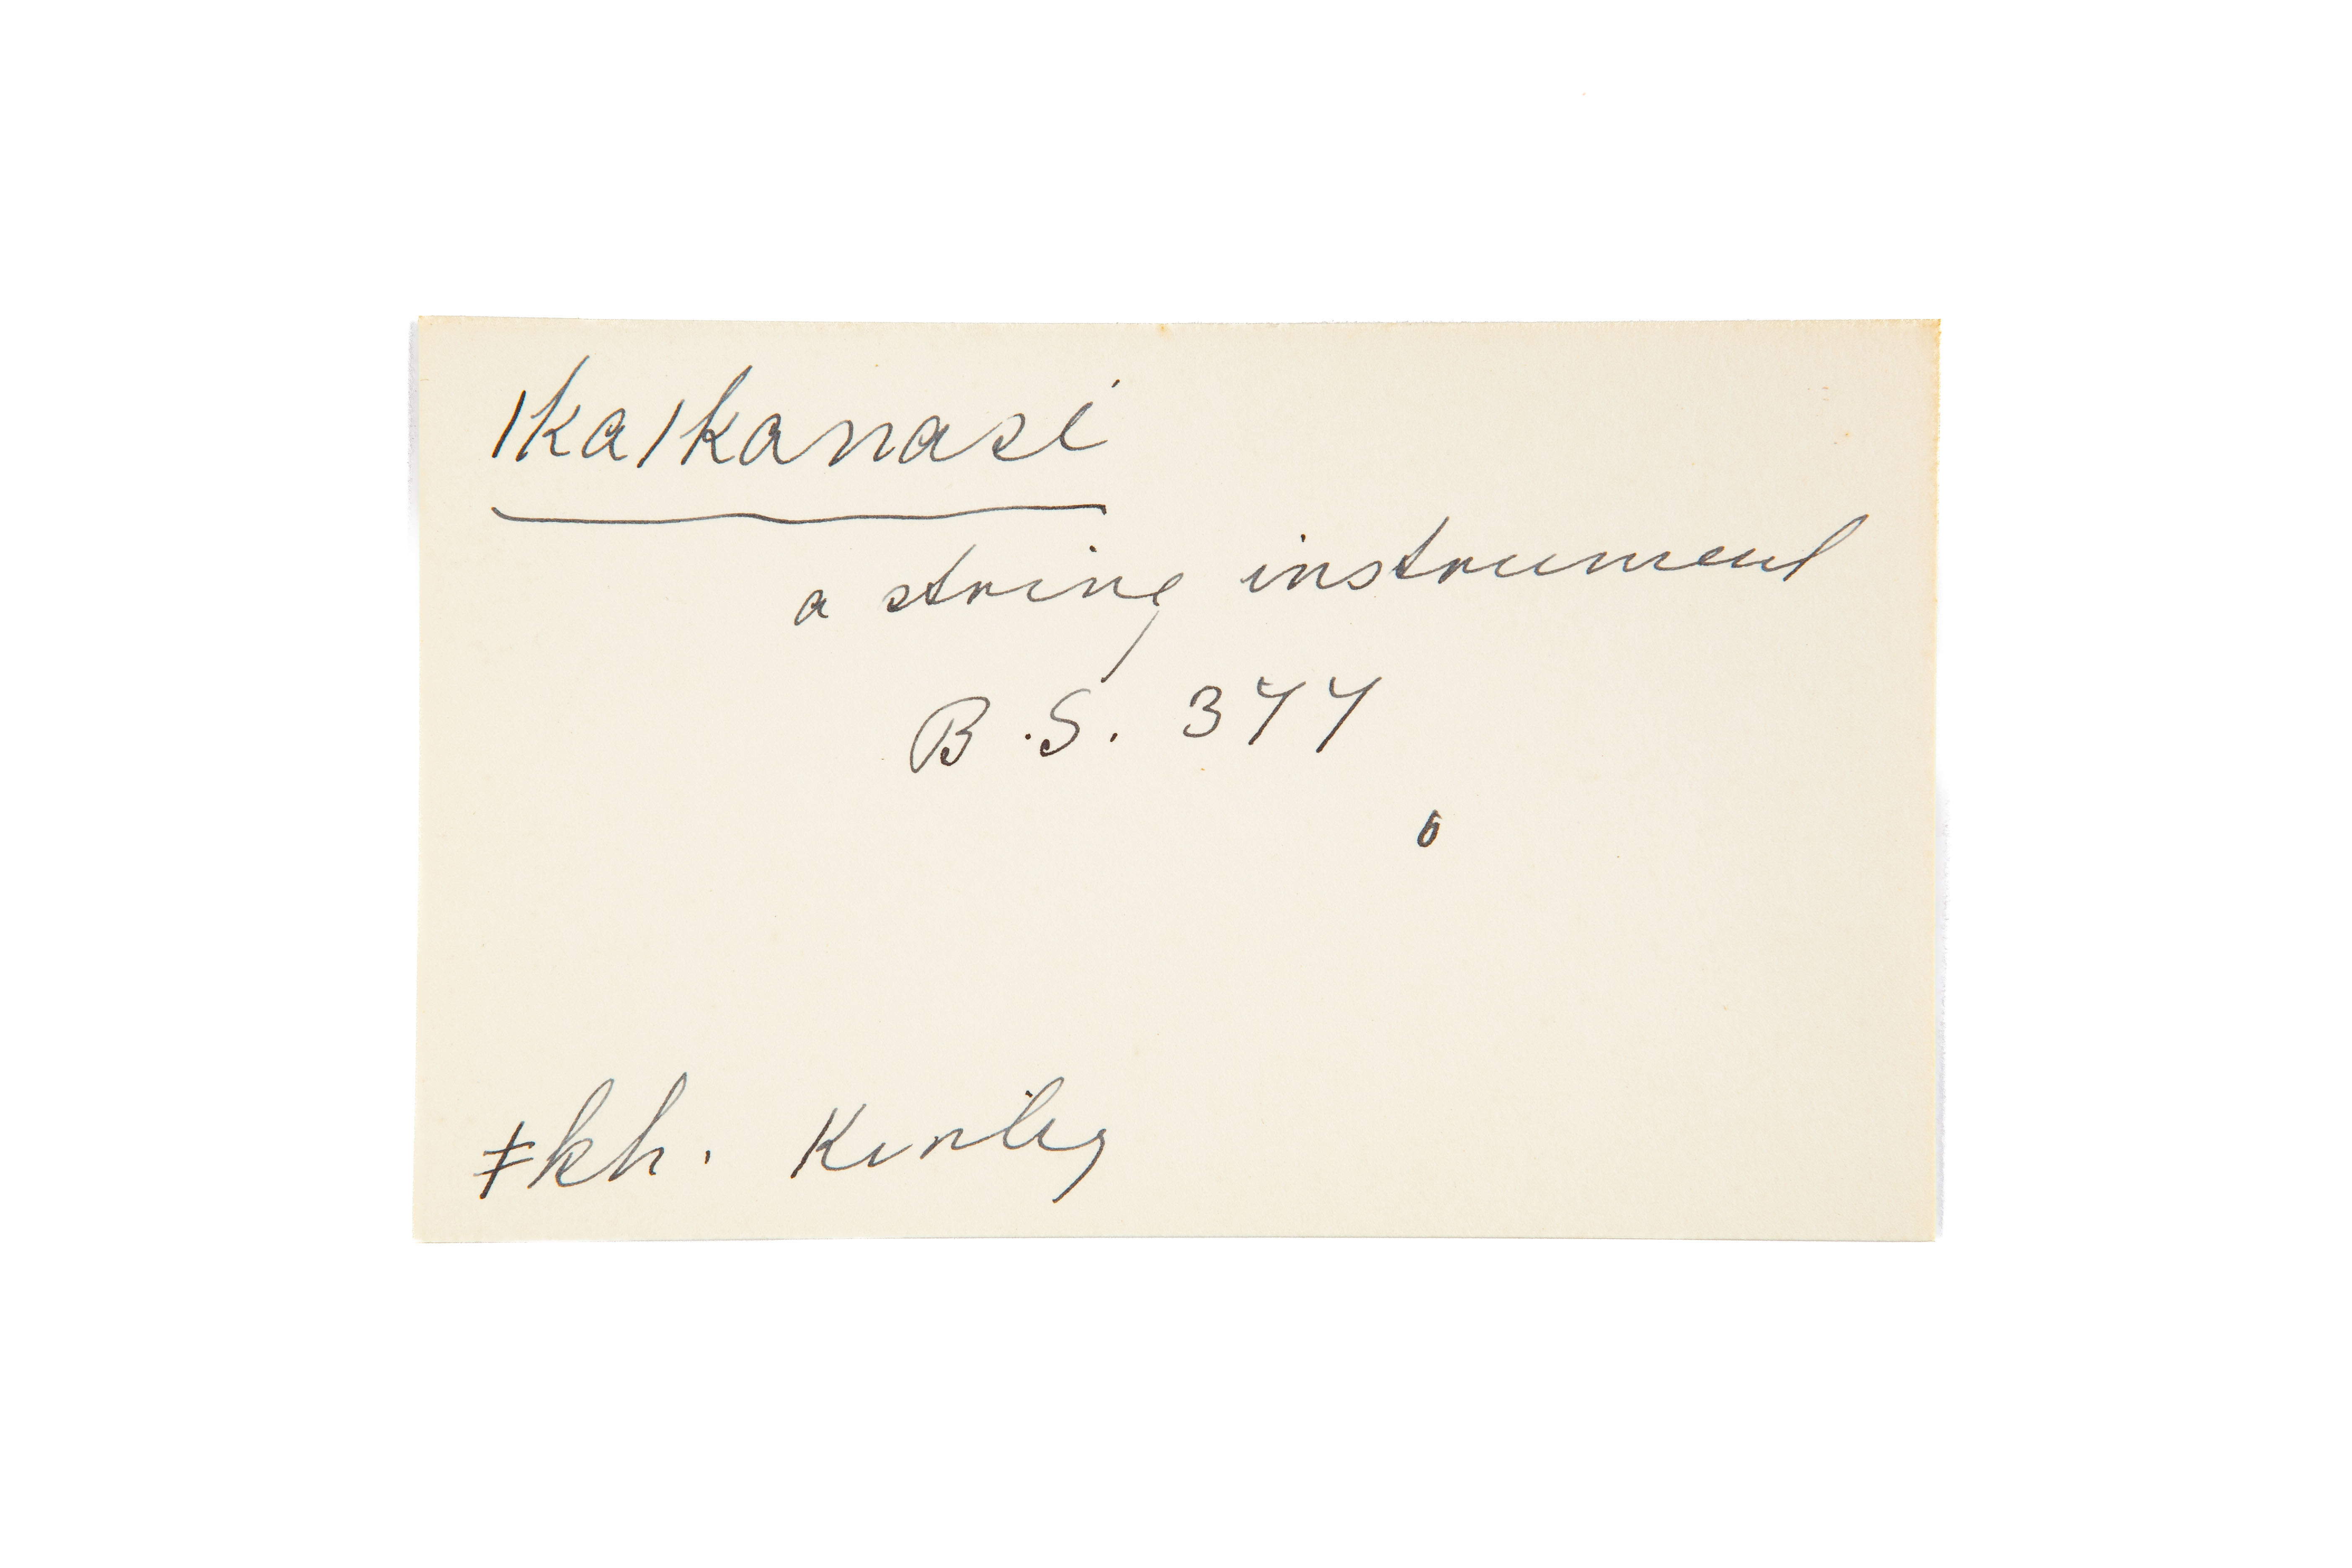 /ka/kanasi
a string instrument
B.S. 377
o
ǂkh. Kirby